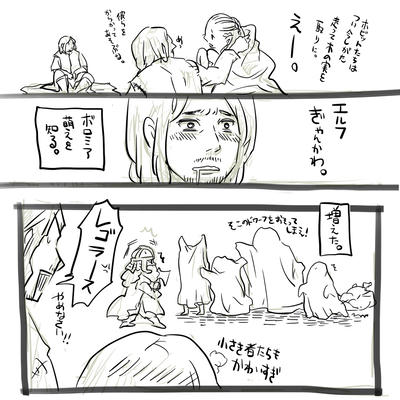 ホビットたちは
つい今しがた
走って木の実を
取りに。
えー。
僕らを
からかって
エルフ
ぎゃんかわ。
ボロミア
萌えを
知る。
増えた。
そこのドワーフをおそって
しまえ!
レゴラース
やめなさい!!
小さき者たちも
かわいすぎ